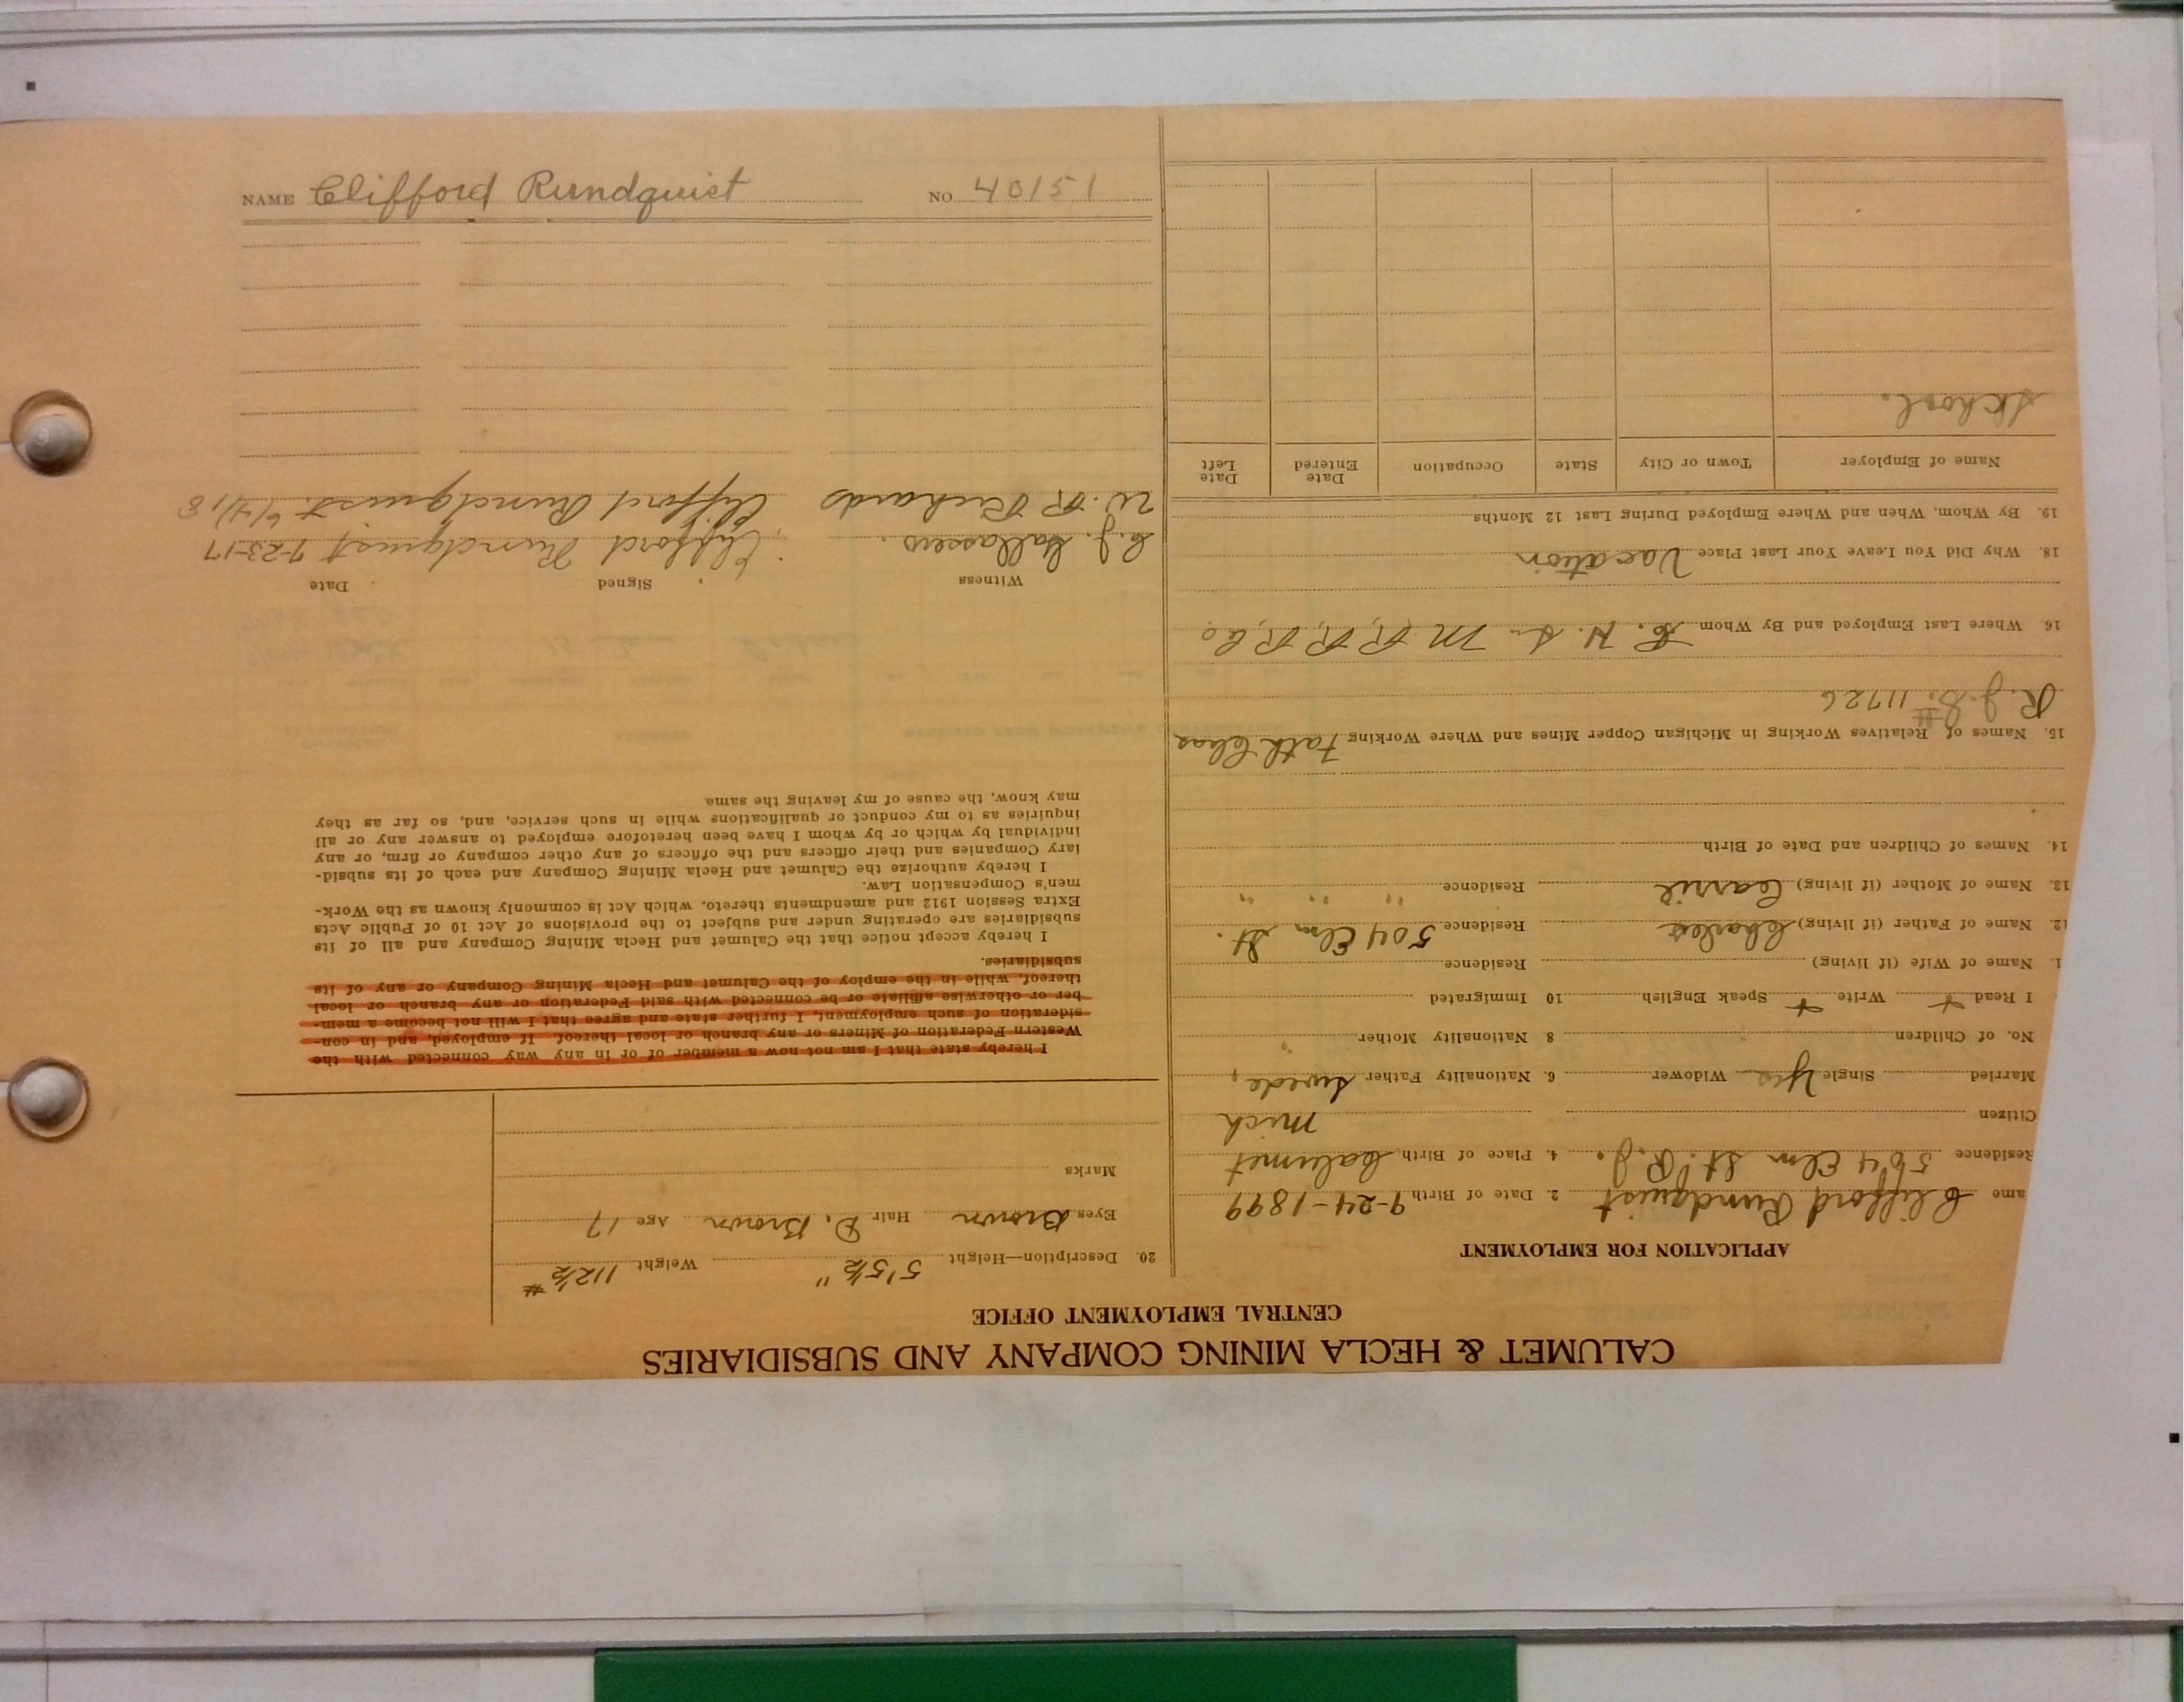 CALUMET & HECLA MINING COMPANY AND SUBSIDIARIES
CENTRAL EMPLOYMENT OFFICE
APPLICATION FOR EMPLOYMENT
ame Clifford Rundquist 2. Date of Birth 9-24-1899
Residence 504 Elm St. R.J. 4. Place of Birth Calumet
Citizen Mich
Married Single Yes Widower 6. Nationality Father Swede
No. of Children 8 Nationality Mother "
I Read + Write + Speak English 10 Immigrated
1. Name of Wife (if living) Residence
12. Name of Father (if living) Charles Residence 504 Elm St.
13. Name of Mother (if living) Carrie Residence " " "
14. Names of Children and Date of Birth
15. Names of Relatives Working in Michigan Copper Mines and Where Working Fath Chas
R.J.S. # 11726
16. Where Last Employed and By Whom C. H. & M R.R.R.Co.
18. Why Did You Leave Your Last Place Vacation
19. By Whom, When and Where Employed During Last 12 Months
Name of Employer Town or City State Occupation Date Entered Date Left
School.
20. Description—Height 5'5½" Weight 112½ #
Eyes Brown Hair D. Brown Age 17
Marks
I hereby state that I am not now a member of or in any way connected with the
Western Federation of Miners or any branch or local thereof. If employed, and in con-
sideration of such employment, I further state and agree that I will not become a mem-
ber or otherwise affiliate or be connected with said Federation or any branch or local
thereof, while in the employ of the Calumet and Hecla Mining Company or any of its
subsidiaries.
I hereby accept notice that the Calumet and Hecla Mining Company and all of its
subsidiaries are operating under and subject to the provisions of Act 10 of Public Acts
Extra Session 1912 and amendments thereto, which Act is commonly known as the Work-
men's Compensation Law.
I hereby authorize the Calumet and Hecla Mining Company and each of its subsid-
iary Companies and their officers and the officers of any other company or firm, or any
individual by which or by whom I have been heretofore employed to answer any or all
inquiries as to my conduct or qualifications while in such service, and, so far as they
may know, the cause of my leaving the same
Witness Signed Date
C.J. Clifford Rundquist 7-23-17
W. R Richards Clifford Rundquist. 6/4/18
NAME Clifford Rundquist NO. 40151